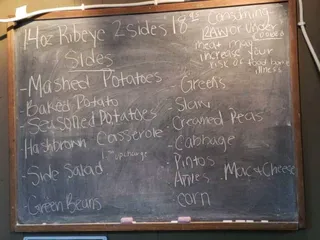 14oz Ribeye 2 sides 18⁰⁰
Consuming
RAW or under
cooked
meat may
increase your
risk of food borne
illness
Sides
-Mashed Potatoes
-Baked Potato
-Seasoned Potatoes
Hashbrown Casserole
upcharge
-Side Salad
-Green Beans
-Greens
-Slaw
-Creamed Peas
-Cabbage
-Pintos
Apples
Mac & Cheese
-Corn